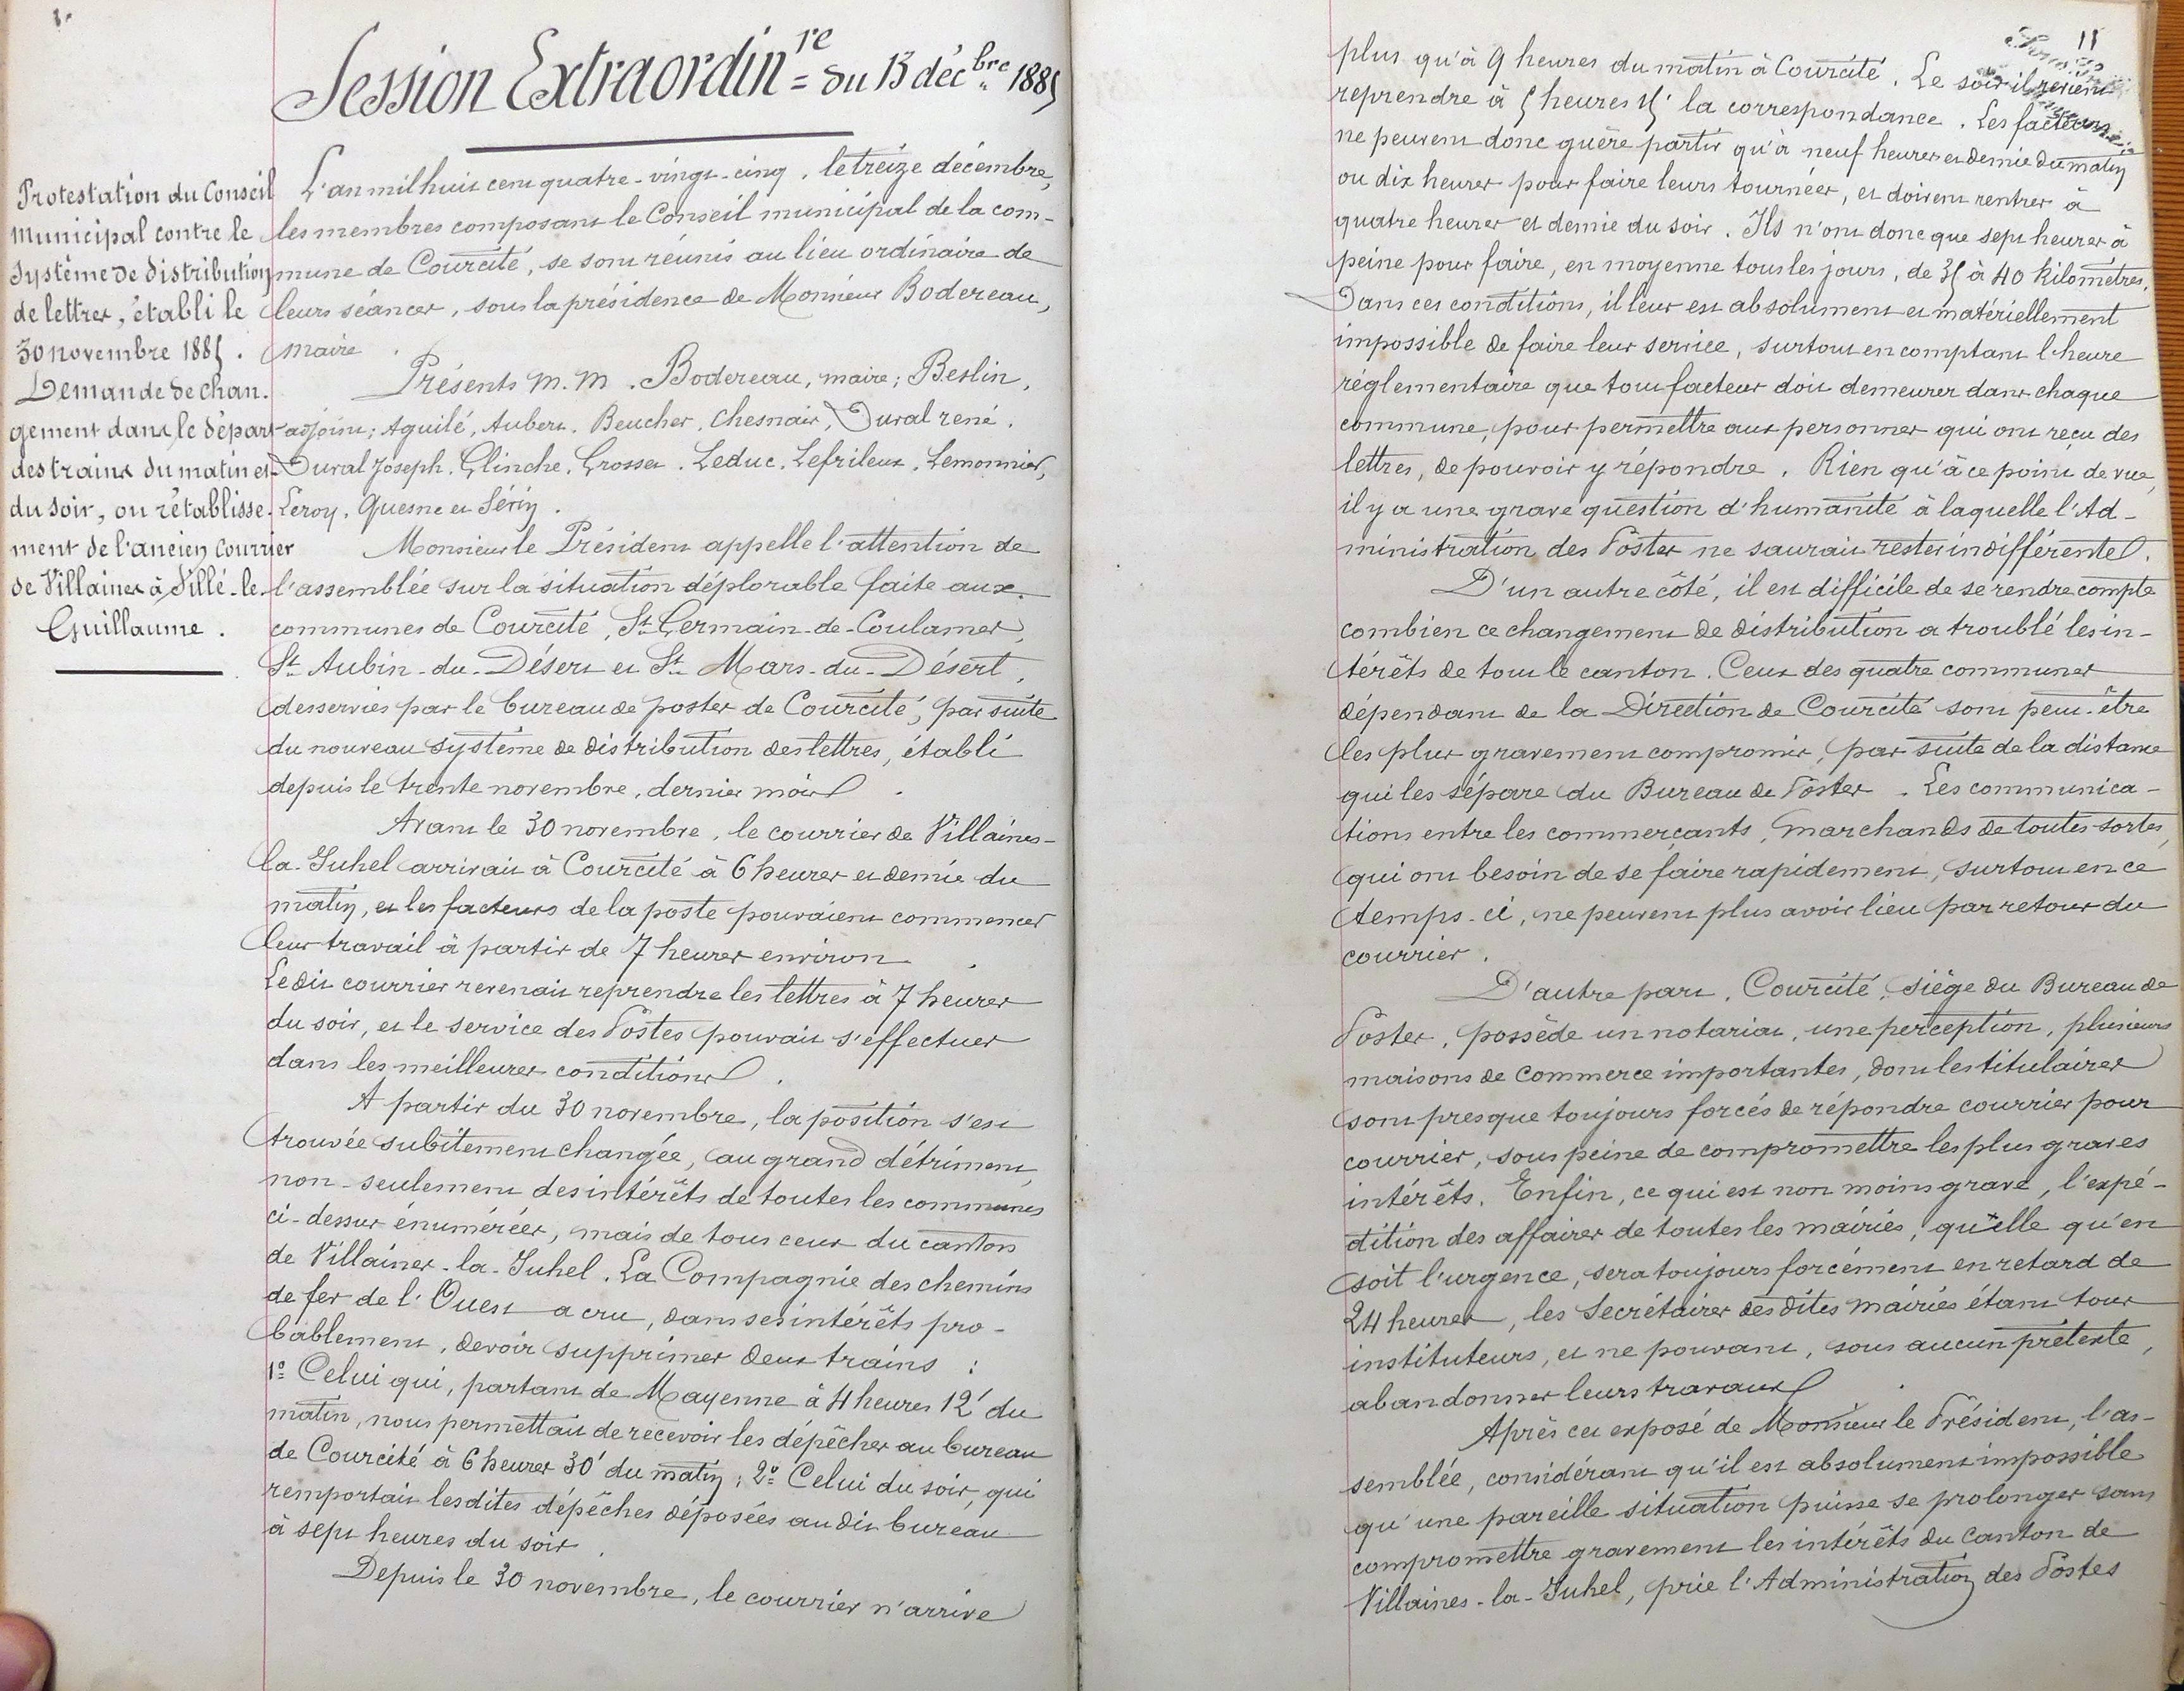 Session Extraordin^re = du 13 déc^bre 1885
Protestation du Conseil
municipal contre le
système de distribution
de lettres, établi le
30 novembre 1885.
Demande de chan.
gement dans le départ
des trains du matin et
du soir, ou rétablisse.
ment de l'ancien courrier
de Villaines à Sillé-le-
Guillaume.
L'an mil huit cent quatre-vingt-cinq, le treize décembre,
les membres composant le Conseil municipal de la com-
mune de Courcité, se sont réunis au lieu ordinaire de
leurs séances, sous la présidence de Monsieur Bodereau,
maire.
Présents M.M. Bodereau, maire; Berlin,
adjoint; Aguilé, Aubert, Beucher, Chesnais, Duval rené,
Duval Joseph, Glinche, Grosset, Leduc, Lefrileux, Lemonnier,
Leroy, Quesne et Sérin.
Monsieur le Président appelle l'attention de
l'assemblée sur la situation déplorable faite aux
communes de Courcité, St Germain-de-Coulamer,
St Aubin-du-Désert et St Mars-du-Désert,
desservies par le bureau de postes de Courcité, par suite
du nouveau système de distribution des lettres, établi
depuis le trente novembre, dernier mois.
Avant le 30 novembre, le courrier de Villaines-
la-Juhel arrivait à Courcité à 6 heures et demie du
matin, et les facteurs de la poste pouvaient commencer
leur travail à partir de 7 heures environ.
Le dit courrier revenait reprendre les lettres à 7 heures
du soir, et le service des Postes pouvait s'effectuer
dans les meilleures conditions.
A partir du 30 novembre, la position s'est
trouvée subitement changée, au grand détriment,
non-seulement des intérêts de toutes les communes
ci-dessus énumérées, mais de tous ceux du canton
de Villaines-la-Juhel. La Compagnie des chemins
de fer de l'Ouest a cru, dans ses intérêts pro-
bablement, devoir supprimer deux trains :
1º Celui qui, partant de Mayenne à 4 heures 12' du
matin, nous permettait de recevoir les dépêches au bureau
de Courcité à 6 heures 30' du matin; 2º Celui du soir, qui
remportait lesdites dépêches déposées au dit bureau
à sept heures du soir.
Depuis le 30 novembre, le courrier n'arrive
11
plus qu'à 9 heures du matin à Courcité. Le soir il revient
reprendre à 5 heures 15' la correspondance. Les facteurs
ne peuvent donc guère partir qu'à neuf heures et demie du matin
ou dix heures pour faire leurs tournées, et doivent rentrer à
quatre heures et demie du soir. Ils n'ont donc que sept heures à
peine pour faire, en moyenne tous les jours, de 35 à 40 kilomètres.
Dans ces conditions, il leur est absolument et matériellement
impossible de faire leur service, surtout en comptant l'heure
réglementaire que tout facteur doit demeurer dans chaque
commune, pour permettre aux personnes qui ont reçu des
lettres, de pouvoir y répondre. Rien qu'à ce point de vue,
il y a une grave question d'humanité à laquelle l'Ad-
ministration des Postes ne saurait rester indifférente.
D'un autre côté, il est difficile de se rendre compte
combien ce changement de distribution a troublé les in-
térêts de tout le canton. Ceux des quatre communes
dépendant de la Direction de Courcité sont peut-être
les plus gravement compromis, par suite de la distance
qui les sépare du Bureau de Postes. Les communica-
tions entre les commerçants, marchands de toutes sortes,
qui ont besoin de se faire rapidement, surtout en ce
temps-ci, ne peuvent plus avoir lieu par retour du
courrier.
D'autre part, Courcité, siège du Bureau de
Postes, possède un notariat, une perception, plusieurs
maisons de commerce importantes, dont les titulaires
sont presque toujours forcés de répondre courrier pour
courrier, sous peine de compromettre les plus graves
intérêts. Enfin, ce qui est non moins grave, l'expé-
dition des affaires de toutes les mairies, qu'elle qu'en
soit l'urgence, sera toujours forcément en retard de
24 heures, les Secrétaires des dites mairies étant tous
instituteurs, et ne pouvant, sous aucun prétexte,
abandonner leurs travaux.
Après cet exposé de Monsieur le Président, l'as-
semblée, considérant qu'il est absolument impossible
qu'une pareille situation puisse se prolonger sans
compromettre gravement les intérêts du Canton de
Villaines-la-Juhel, prie l'Administration des Postes